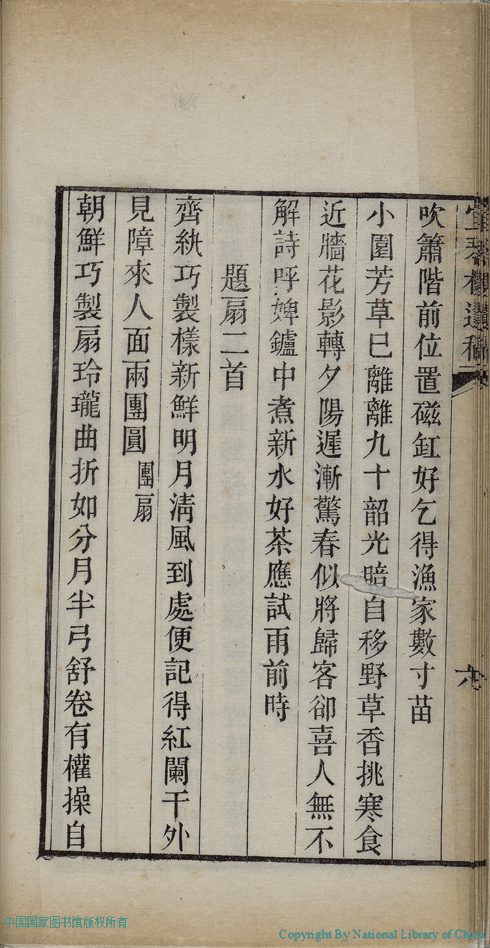 吹簫階前位置磁缸好乞得漁家數寸苗
小園芳草已離離九十韶光暗自移野草香挑寒食
近牆花影轉夕陽遲漸驚春似將歸客卻喜人無不
解詩呼婢鑪中煮新水好茶應試雨前時
題扇二首
齊紈巧製樣新鮮明月清風到處便記得紅闌干外
見障來人面兩團圓 團扇
朝鮮巧製扇玲瓏曲折如分月半弓舒卷有權操自
中国国家图书馆版权所有
Copyright By National Library of China